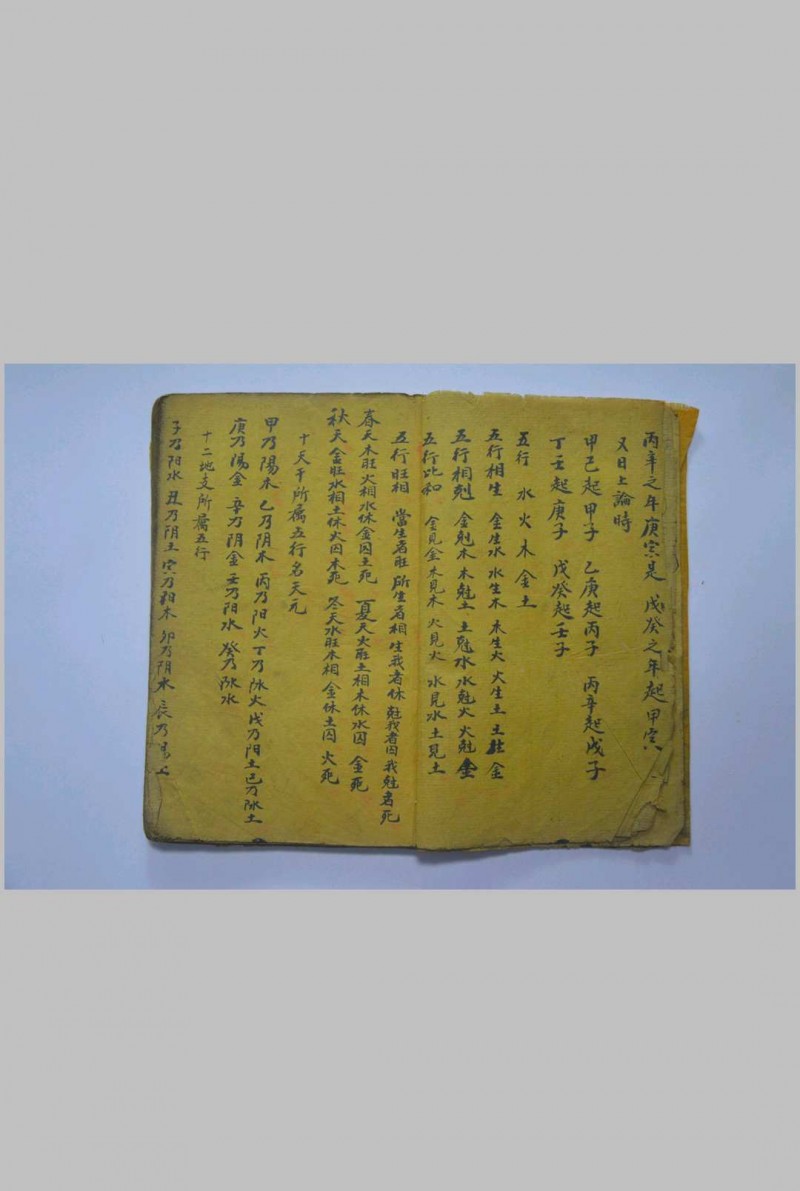 丙辛之年庚寅是 戊癸之年起甲寅
又日上論時
甲己起甲子 乙庚起丙子 丙辛起戊子
丁壬起庚子 戊癸起壬子
五行 水火木金土
五行相生 金生水 水生木 木生火 火生土 土生金
五行相剋 金剋木 木剋土 土剋水 水剋火 火剋金
五行比和 金見金 木見木 火見火 水見水 土見土
五行旺相 當生者旺 所生者相 生我者休 剋我者囚 我剋者死
春天木旺 火相 水休 金囚 土死 夏天火旺 土相 木休 水囚 金死
秋天金旺 水相 土休 火囚 木死 冬天水旺 木相 金休 土囚 火死
十天干所属五行名天元
甲乃陽木 乙乃阴木 丙乃阳火 丁乃阴火 戊乃阳土 己乃阴土
庚乃陽金 辛乃阴金 壬乃阳水 癸乃阴水
十二地支所属五行
子乃阳水 丑乃阴土 寅乃阳木 卯乃阴木 辰乃易土